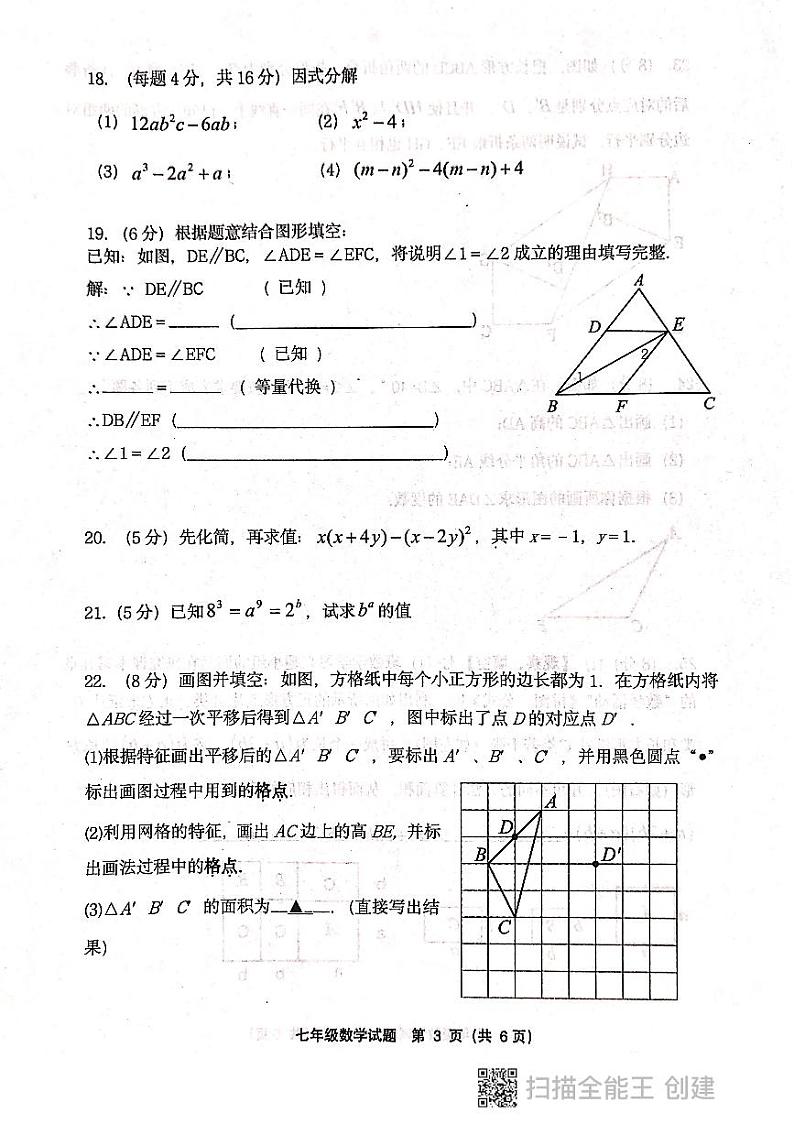 18. (每题4分，共16分) 因式分解
(1) 12ab²c－6ab； (2) x²－4；
(3) a³－2a²＋a； (4) (m－n)²－4(m－n)＋4
19. (6分) 根据题意结合图形填空：
已知：如图，DE∥BC，∠ADE＝∠EFC，将说明∠1＝∠2成立的理由填写完整.
解：∵ DE∥BC （已知）
∴∠ADE＝______ (______________________)
∵∠ADE＝∠EFC （已知）
∴______＝______ （等量代换）
∴DB∥EF (______________________)
∴∠1＝∠2 (______________________)
A
D E
2
1
B F C
20. (5分) 先化简，再求值：x(x＋4y)－(x－2y)²，其中 x＝－1，y＝1.
21. (5分) 已知8³＝a⁹＝2ᵇ，试求bᵃ的值
22. (8分) 画图并填空：如图，方格纸中每个小正方形的边长都为1. 在方格纸内将
△ABC经过一次平移后得到△A′ B′ C′，图中标出了点D的对应点D′.
(1)根据特征画出平移后的△A′ B′ C′，要标出A′、B′、C′，并用黑色圆点“●”
标出画图过程中用到的格点.
(2)利用网格的特征，画出AC边上的高BE，并标
出画法过程中的格点.
(3)△A′ B′ C′ 的面积为__▲__. (直接写出结
果)
A
D
B D′
C
七年级数学试题 第 3 页 (共 6 页)
扫描全能王 创建